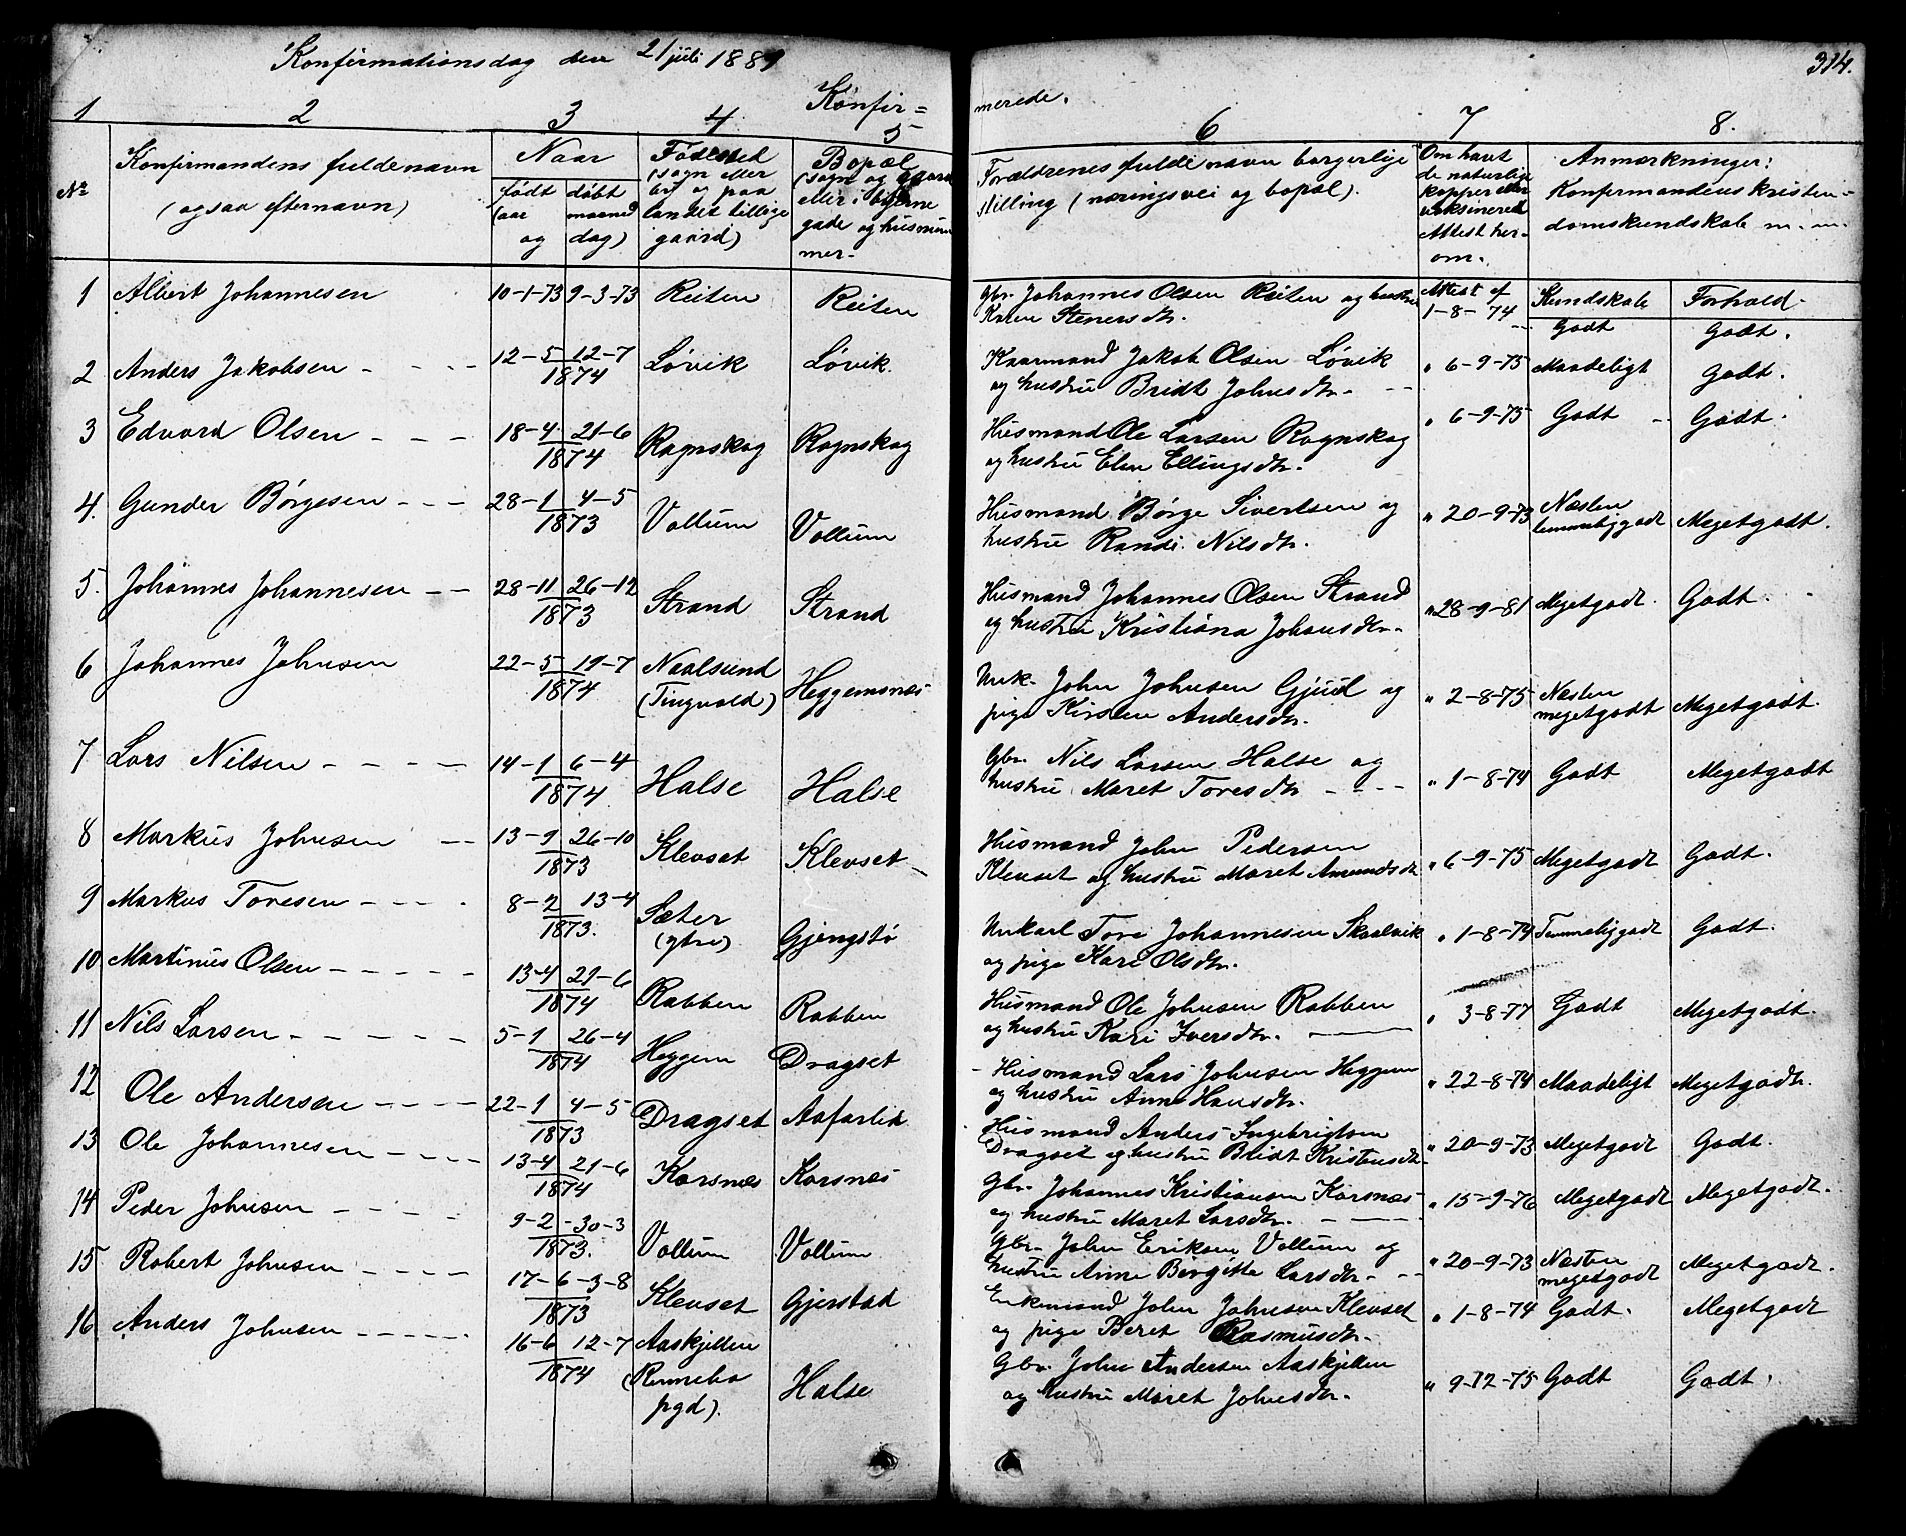 Konfirmationsdag den 21 juli 1889
Konfir=
merede.
314.
1 2 3 4 5 6 7 8.
No
Konfirmandens fulde navn
(ogsaa efternavn)
Naar
født døbt
(aar maaned
og dag)
Fødested
(sogn eller
by og paa
landet tillige
gaard)
Bopæl
(sogn og gaard
eller i byerne
gade og husnum
mer.
Forældrenes fulde navn borgerlige
stilling (næringsvei og bopæl).
Om havt
de naturlige
kopper eller
vaksinered
Attest her-
om.
Anmærkninger:
Konfirmandens kristen-
domskundskab m. m.
Kundskab Forhold.
1 Albert Johannesen 10-1-73 9-3-73 Reiten Reiten Gbr. Johannes Olsen Reiten og hustru Attest af
Karen Stenersdtr. 1-8-74 Godt Godt.
2 Anders Jakobsen 12-5 12-7 Løvik Løvik. Kaarmand Jakob Olsen Løvik " 6-9-75 Maadeligt Godt.
1874 og hustru Bridt Johnsdtr.
3 Edvard Olsen 18-4 21-6 Rognskog Rognskog Husmand Ole Larsen Rognskog " 6-9-75 Godt Godt.
1874 og hustru Elen Ellingsdtr.
4. Gunder Børgesen 28-1 4-5 Vollum Vollum Husmand Børge Sivertsen og " 20-9-73 Næsten
1873 hustru Randi Nilsdtr. temmeliggodt Megetgodt.
5. Johannes Johannesen 28-11 26-12 Strand Strand Husmand Johannes Olsen Strand " 28-9-81 Megetgodt. Godt.
1873 og hustru Kristiana Johansdtr.
6 Johannes Johnsen 22-5 19-7 Naalsund Heggemsnes Unk. John Johnsen Gjul og " 2-8-75 Næsten
1874 (Tingvold) pige Kirsten Andersdtr. megetgodt Megetgodt.
7 Lars Nilsen 14-1 6-4 Halse Halse Gbr. Nils Larsen Halse og " 1-8-74 Godt Megetgodt
1874 hustru Maret Toresdtr
8 Markus Johnsen 13-9 26-10 Klevset Klevset Husmand John Pedersen " 6-9-75 Megetgodt Godt.
1873 Klevset og hustru Maret Amundsdtr
9 Markus Toresen 8-2 13-4 Sæter Gjengstø Unkarl Tore Johannesen Skaalvik " 1-8-74 Temmeliggodt Godt.
1873. (ytre) og pige Kari Olsdtr.
10 Martinus Olsen 13-4 21-6 Rabben Rabben Husmand Ole Johnsen Rabben " 3-8-77 Godt Megetgodt.
1874 og hustru Kari Iversdtr.
11 Nils Larsen 5-1 26-4 Heggem Dragset Husmand Lars Johnsen Heggem " 22-8-74 Maadeligt Megetgodt.
1874 og hustru Anne Hansdtr.
12 Ole Andersen 22-1 4-5 Dragset Aafarlid Husmand Anders Ingebrigtsen " 20-9-73 Megetgodt Godt.
1873 Dragset og hustru Bridt Kristensdtr.
13 Ole Johannesen 13-4 21-6 Korsnes Korsnes Gbr. Johannes Kristiansen Korsnes " 15-9-76 Megetgodt Megetgodt.
1874 og hustru Maret Larsdtr.
14 Peder Johnsen 9-2 30-3 Vollum Vollum Gbr. John Eriksen Vollum og " 20-9-73 Næsten
1873. hustru Anne Birgitte Larsdtr. megetgodt Megetgodt.
15 Robert Johnsen 17-6 3-8 Klevset Gjerstad Enkemand John Johnsen Klevset " 1-8-74 Godt. Megetgodt
1873 og pige Beret Rasmusdtr.
16 Anders Johnsen 16-6 12-7 Aaskjelden Halse Gbr. John Andersen Aaskjelden " 9-12-75 Godt Godt.
1874 (Rennebo og hustru Maret Johnsdtr.
pgd).